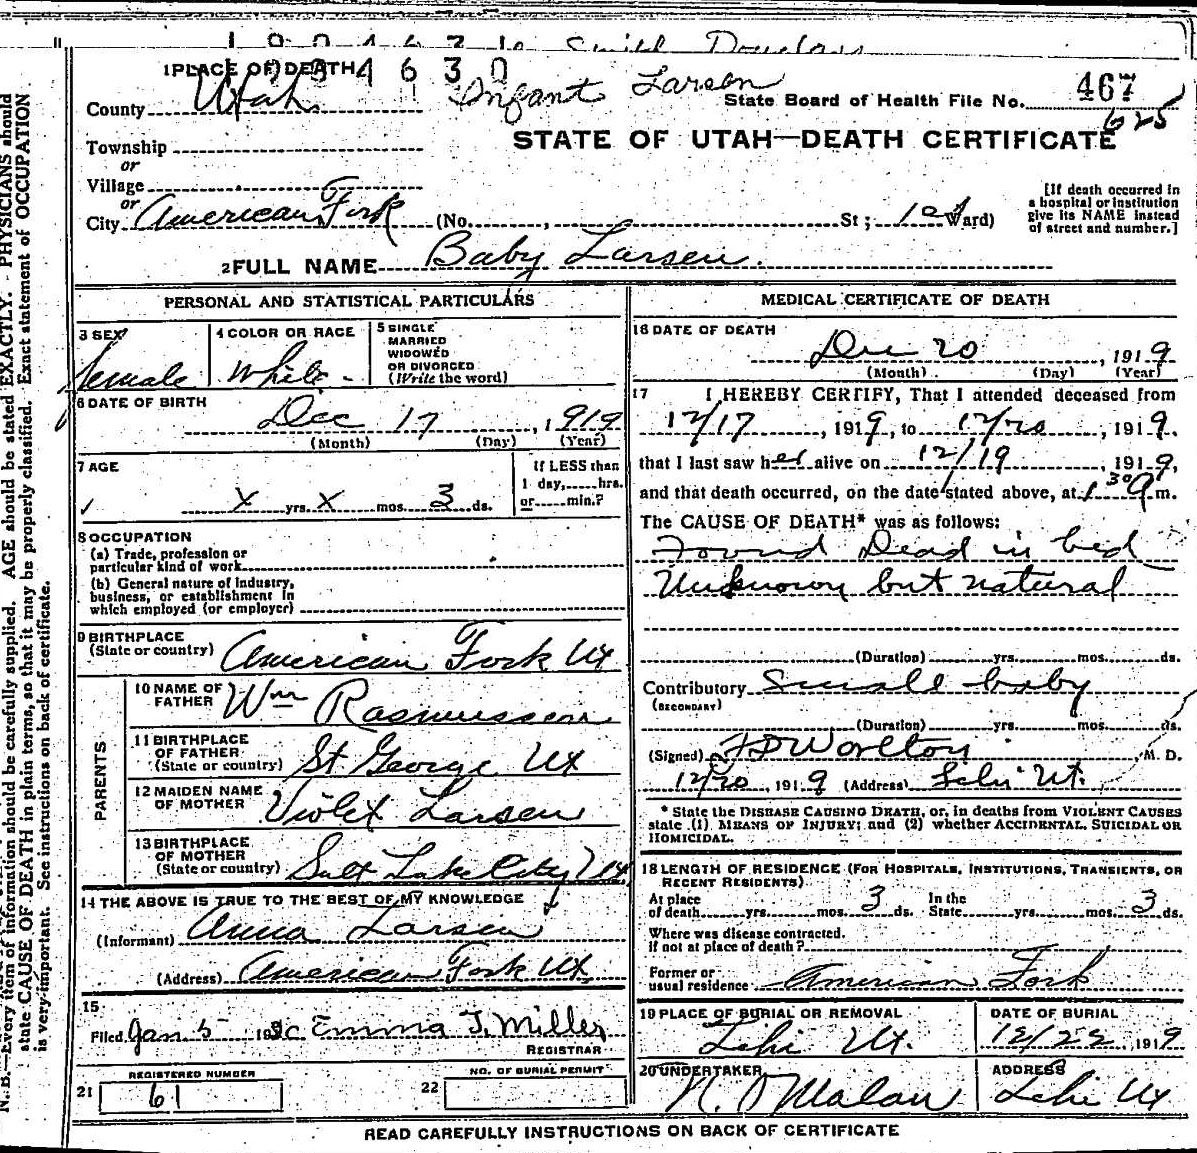 1 PLACE OF DEATH
Infant Larsen
County Utah
State Board of Health File No. 467
625
STATE OF UTAH—DEATH CERTIFICATE
Township
or
Village
or
City American Fork (No. , St ; 1st Ward)
[If death occurred in
a hospital or institution
give its NAME instead
of street and number.]
2 FULL NAME Baby Larsen.
PERSONAL AND STATISTICAL PARTICULARS
3 SEX female
4 COLOR OR RACE White
5 SINGLE
MARRIED
WIDOWED
OR DIVORCED
(Write the word)
6 DATE OF BIRTH
Dec 17, 1919
(Month) (Day) (Year)
7 AGE
If LESS than
1 day, hrs.
or min.?
x yrs. x mos. 3 ds.
8 OCCUPATION
(a) Trade, profession or
particular kind of work
(b) General nature of industry,
business, or establishment in
which employed (or employer)
9 BIRTHPLACE
(State or country) American Fork Ut
PARENTS
10 NAME OF
FATHER Wm Rasmussen
11 BIRTHPLACE
OF FATHER
(State or country) St George Ut
12 MAIDEN NAME
OF MOTHER Violet Larsen
13 BIRTHPLACE
OF MOTHER
(State or country) Salt Lake City Ut
14 THE ABOVE IS TRUE TO THE BEST OF MY KNOWLEDGE
(Informant) Anna Larsen
(Address) American Fork Ut
15
Filed Jan 5 1920 Emma J. Miller
REGISTRAR
21 REGISTERED NUMBER
61
22 NO. OF BURIAL PERMIT
MEDICAL CERTIFICATE OF DEATH
16 DATE OF DEATH
Dec 20, 1919
(Month) (Day) (Year)
17 I HEREBY CERTIFY, That I attended deceased from
12/17, 1919, to 12/20, 1919,
that I last saw her alive on 12/19, 1919,
and that death occurred, on the date stated above, at 1 30 a m.
The CAUSE OF DEATH* was as follows:
Found Dead in bed
Unknown but natural
(Duration) yrs. mos. ds.
Contributory small baby
(SECONDARY)
(Duration) yrs. mos. ds.
(Signed) Worlton, M. D.
12/20, 1919 (Address) Lehi Ut.
* State the DISEASE CAUSING DEATH, or, in deaths from VIOLENT CAUSES
state (1) MEANS OF INJURY; and (2) whether ACCIDENTAL, SUICIDAL OR
HOMICIDAL.
18 LENGTH OF RESIDENCE (FOR HOSPITALS, INSTITUTIONS, TRANSIENTS, OR
RECENT RESIDENTS)
At place
of death yrs. mos. 3 ds.
In the
State yrs. mos. 3 ds.
Where was disease contracted.
if not at place of death?
Former or
usual residence American Fork
19 PLACE OF BURIAL OR REMOVAL
Lehi Ut.
DATE OF BURIAL
12/22, 1919
20 UNDERTAKER
Malan
ADDRESS
Lehi Ut
READ CAREFULLY INSTRUCTIONS ON BACK OF CERTIFICATE
N. B.—Every item of information should be carefully supplied. AGE should be stated EXACTLY. PHYSICIANS should
state CAUSE OF DEATH in plain terms, so that it may be properly classified. Exact statement of OCCUPATION
is very important. See instructions on back of certificate.